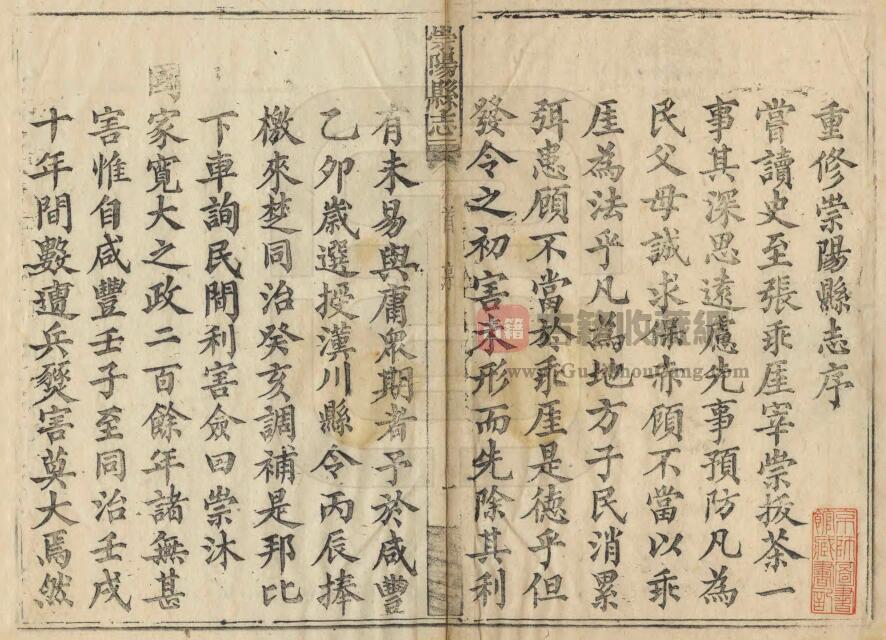 重修崇陽縣志序
嘗讀史至張乖厓宰崇拔茶一
事其深思遠慮先事預防凡為
民父母誠求保赤顧不當以乖
厓為法乎凡為地方子民消累
弭患顧不當於乖厓是德乎但
發令之初害未形而先除其利
崇陽縣志
首 序
一
有未易與庸眾期者予於咸豐
乙卯歲選授漢川縣令丙辰捧
檄來楚同治癸亥調補是邦比
下車詢民間利害僉曰崇沐
國家寬大之政二百餘年諸無甚
害惟自咸豐壬子至同治壬戌
十年間數遭兵燹害莫大焉然
古籍收藏網
www.GuJiShouCang.com
古籍